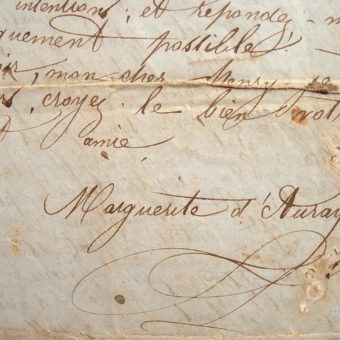 intentions; et répondez, m
quement possible.
ir, mon cher
croyez le bien vot
amie,
Marguerite d'Auray